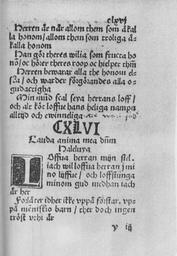 clxvi
Herren är när allom them som åkal
la honom/ allom them som troliga å=
kalla honom
Han gör theres wilia som fructa ho
nō/ oc hörer theres roop oc hielper thē
Herren bewarar alla the honom e
och warder
gudactigha
Min mūd scal seya herrans loff/
och alt kōt loffue hans heliga nampn
alltijd och ewinneliga
CXLVI
Lauda anima mea dūm
Haleluya
Loffua herran mijn siel
iach wil loffua herran j mi
no liiff/ och loffsiunga
minom gud medhan iach
är her
Förlåter idher icke vppå förstar. vps
på mēniskio barn/ ther doch ingen
tröst vthi är
y iij